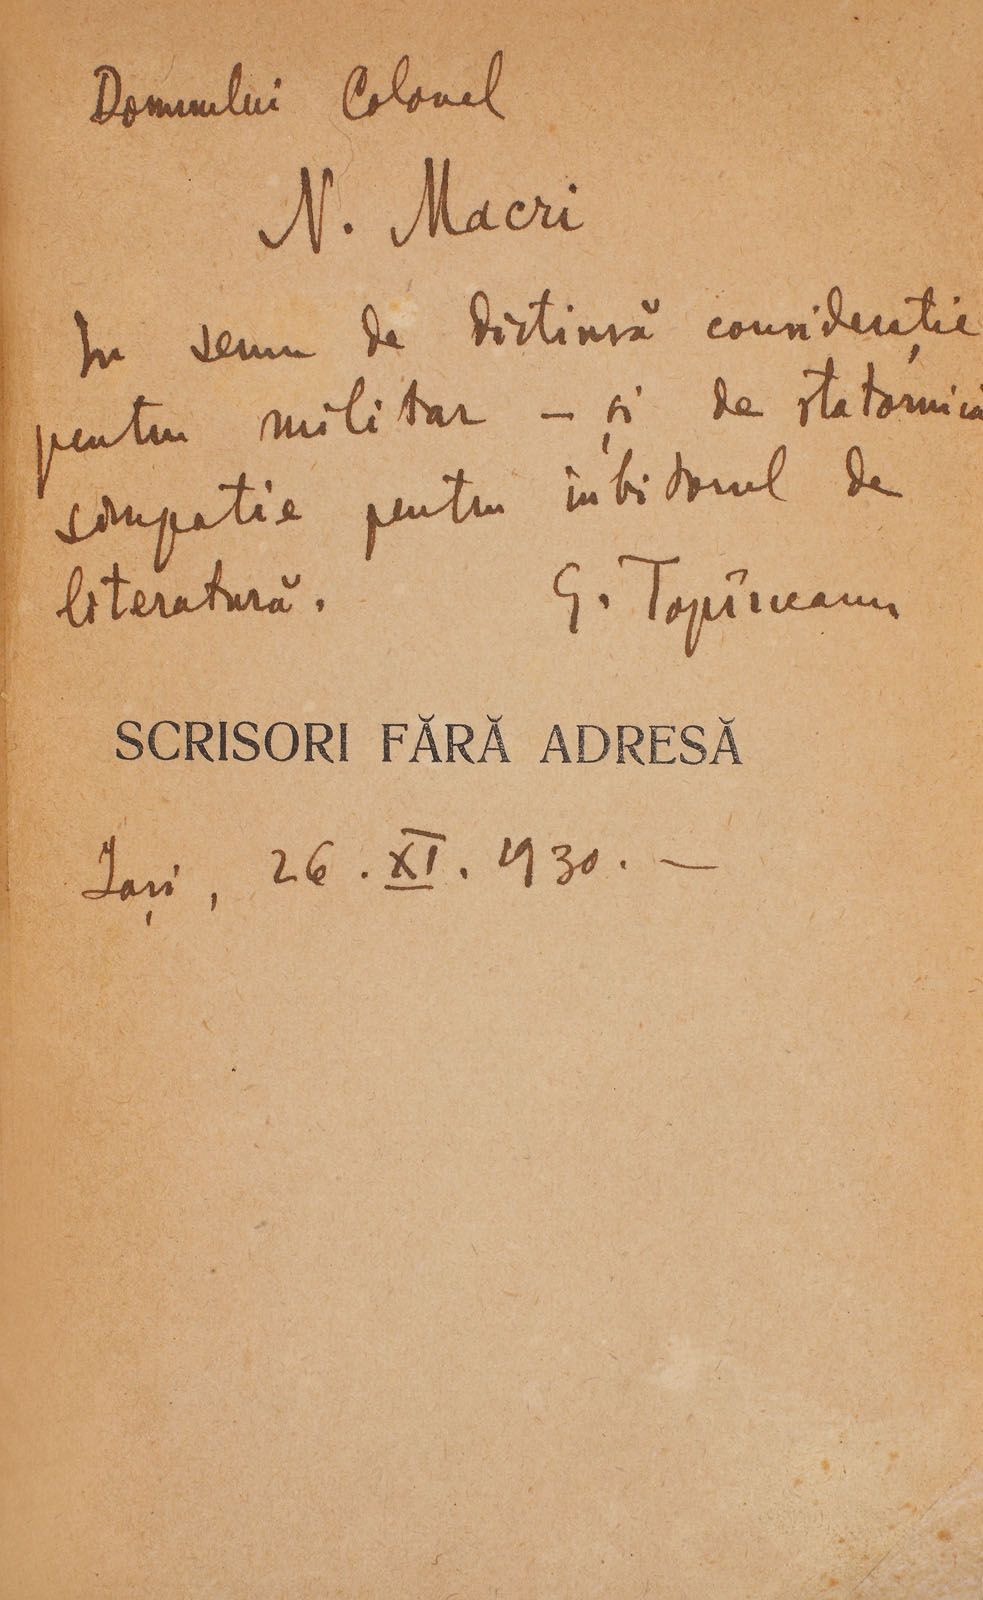 Domnului Colonel
N. Macri
In semn de distinsă considerație
pentru militar – și de statornică
simpatie pentru iubitorul de
literatură. G. Topîrceanu
SCRISORI FĂRĂ ADRESĂ
Iași, 26. XI. 1930. —